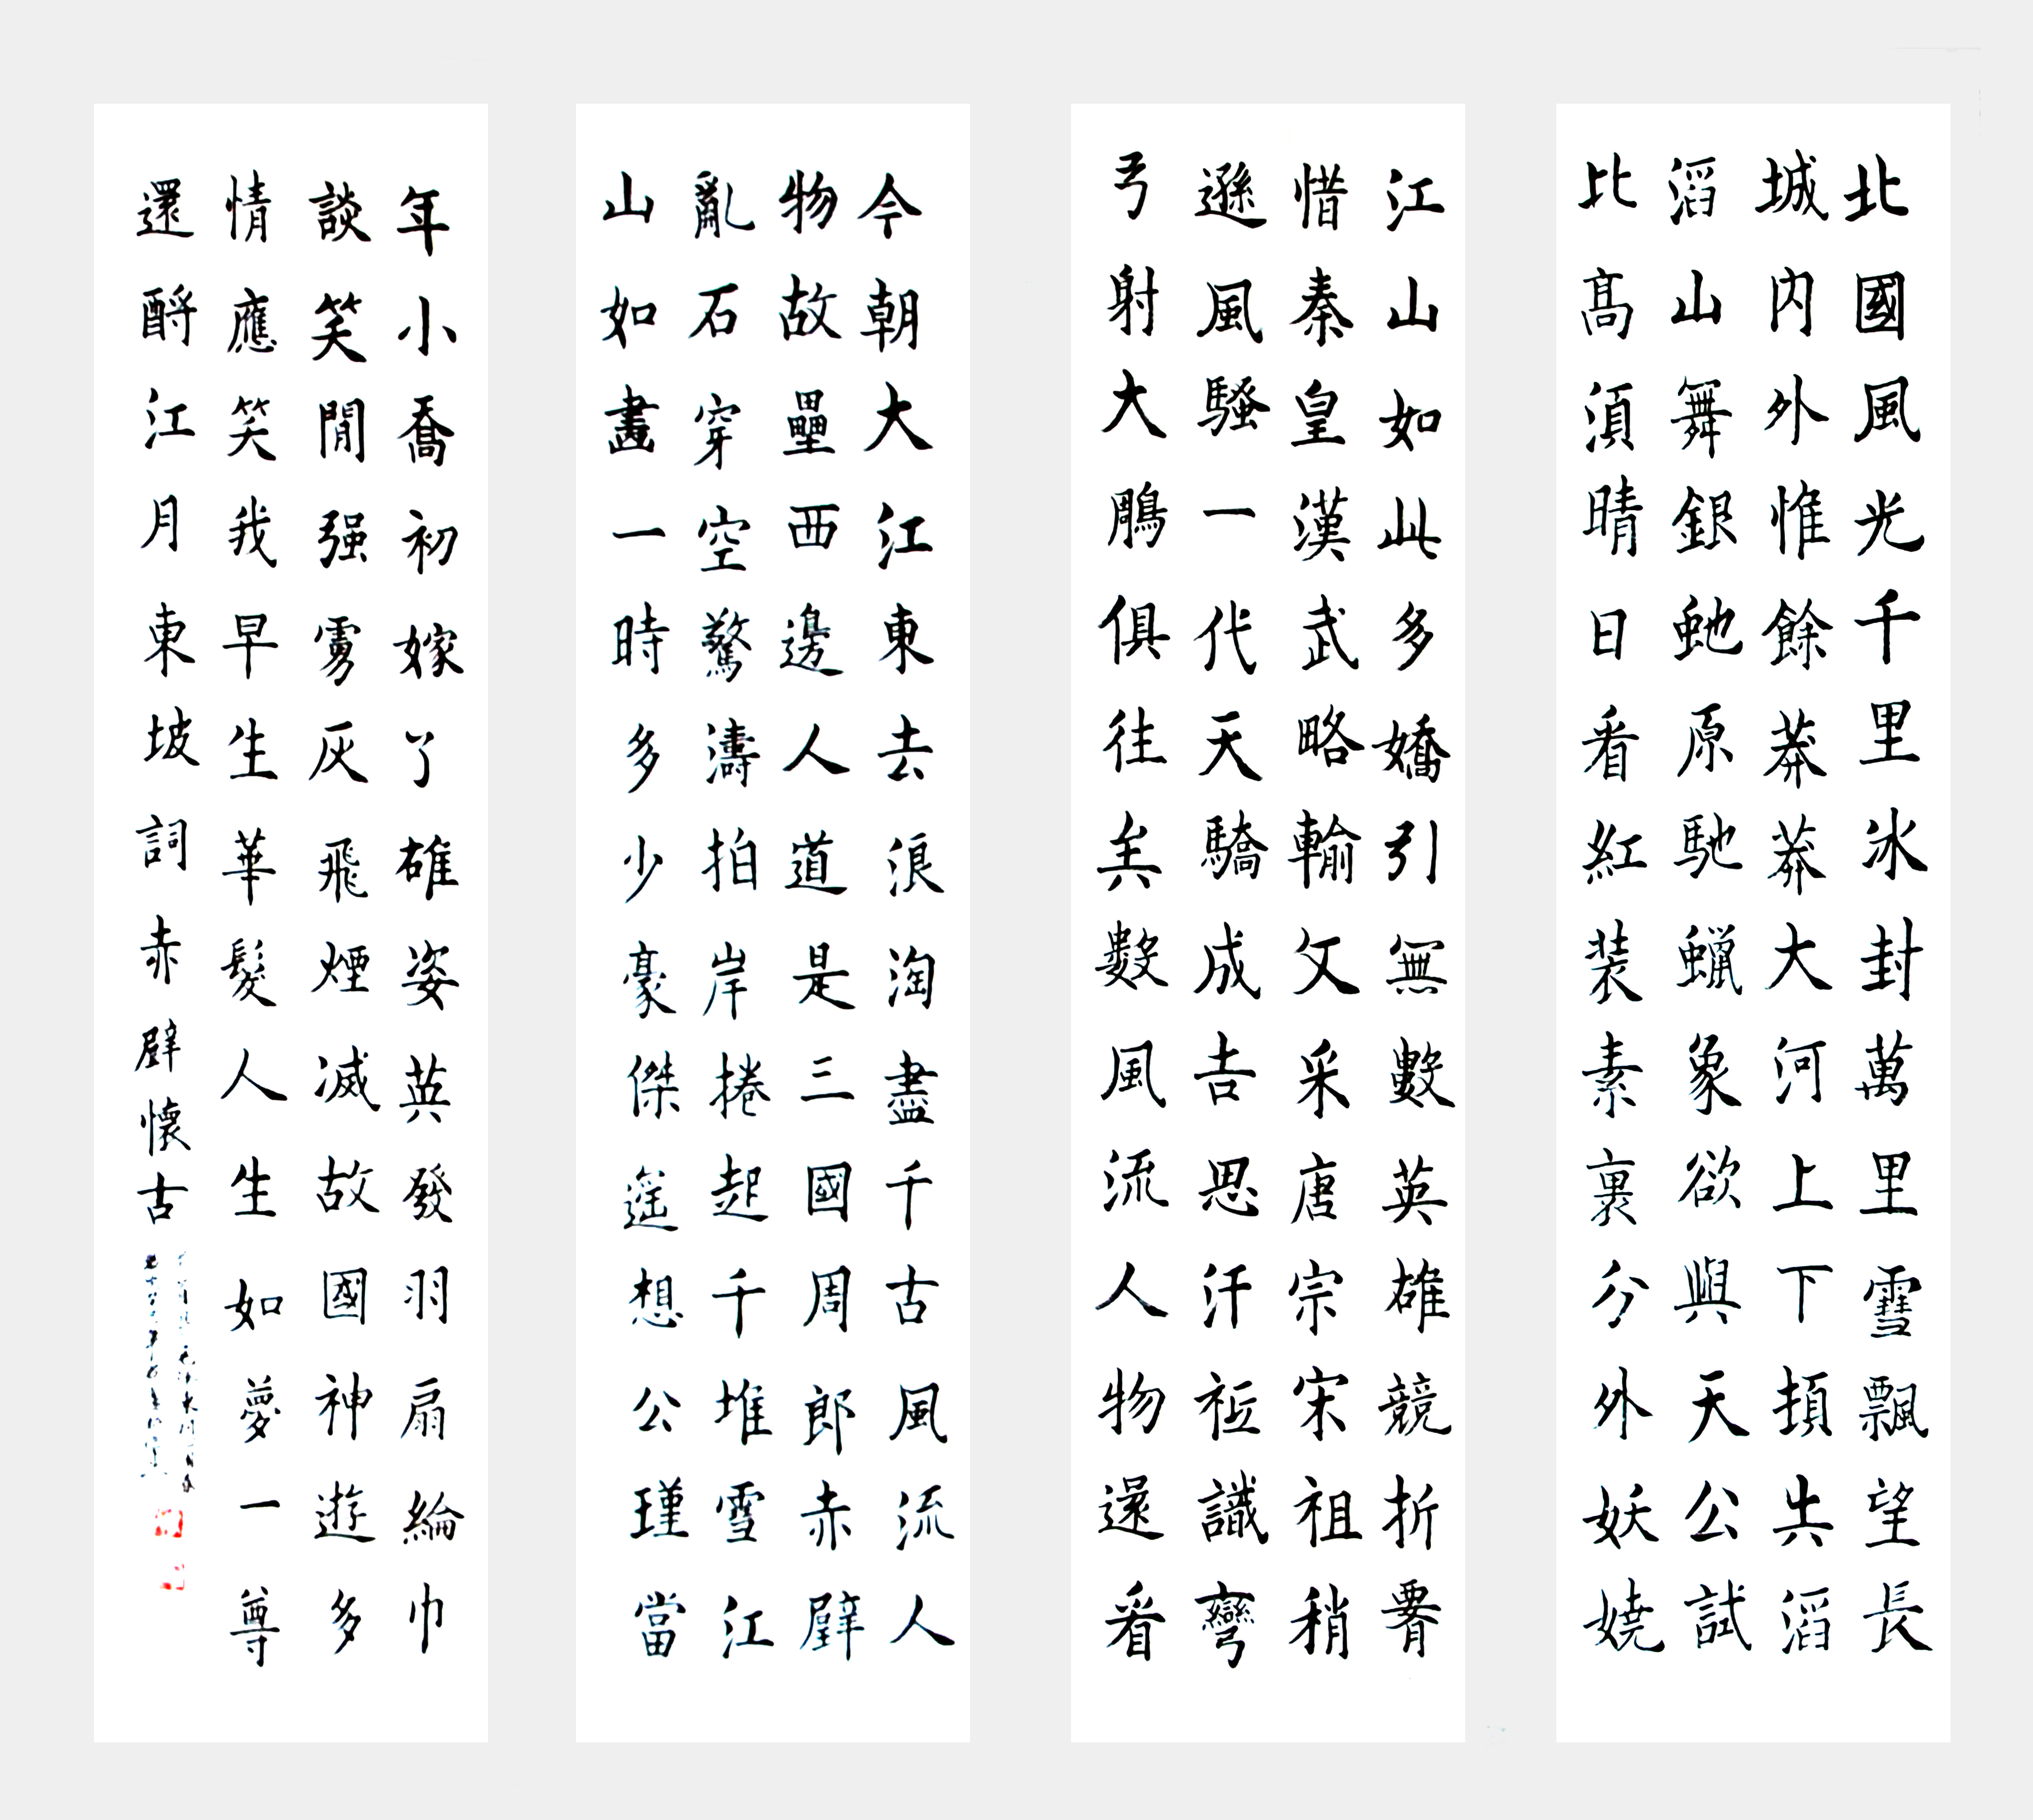 北國風光千里冰封萬里雪飄望長
城内外惟餘莽莽大河上下頓失滔
滔山舞銀虵原馳蠟象欲與天公試
比高須晴日看紅装素裹分外妖嬈
江山如此多嬌引無數英雄競折腰
惜秦皇漢武略輸文采唐宗宋祖稍
遜風騷一代天驕成吉思汗祗識彎
弓射大鵰俱往矣數風流人物還看
今朝大江東去浪淘盡千古風流人
物故壘西邊人道是三國周郎赤壁
亂石穿空驚濤拍岸捲起千堆雪江
山如畫一時多少豪傑遥想公瑾當
年小喬初嫁了雄姿英發羽扇綸巾
談笑間强虜灰飛煙滅故國神遊多
情應笑我早生華髮人生如夢一尊
還酹江月東坡詞赤壁懷古